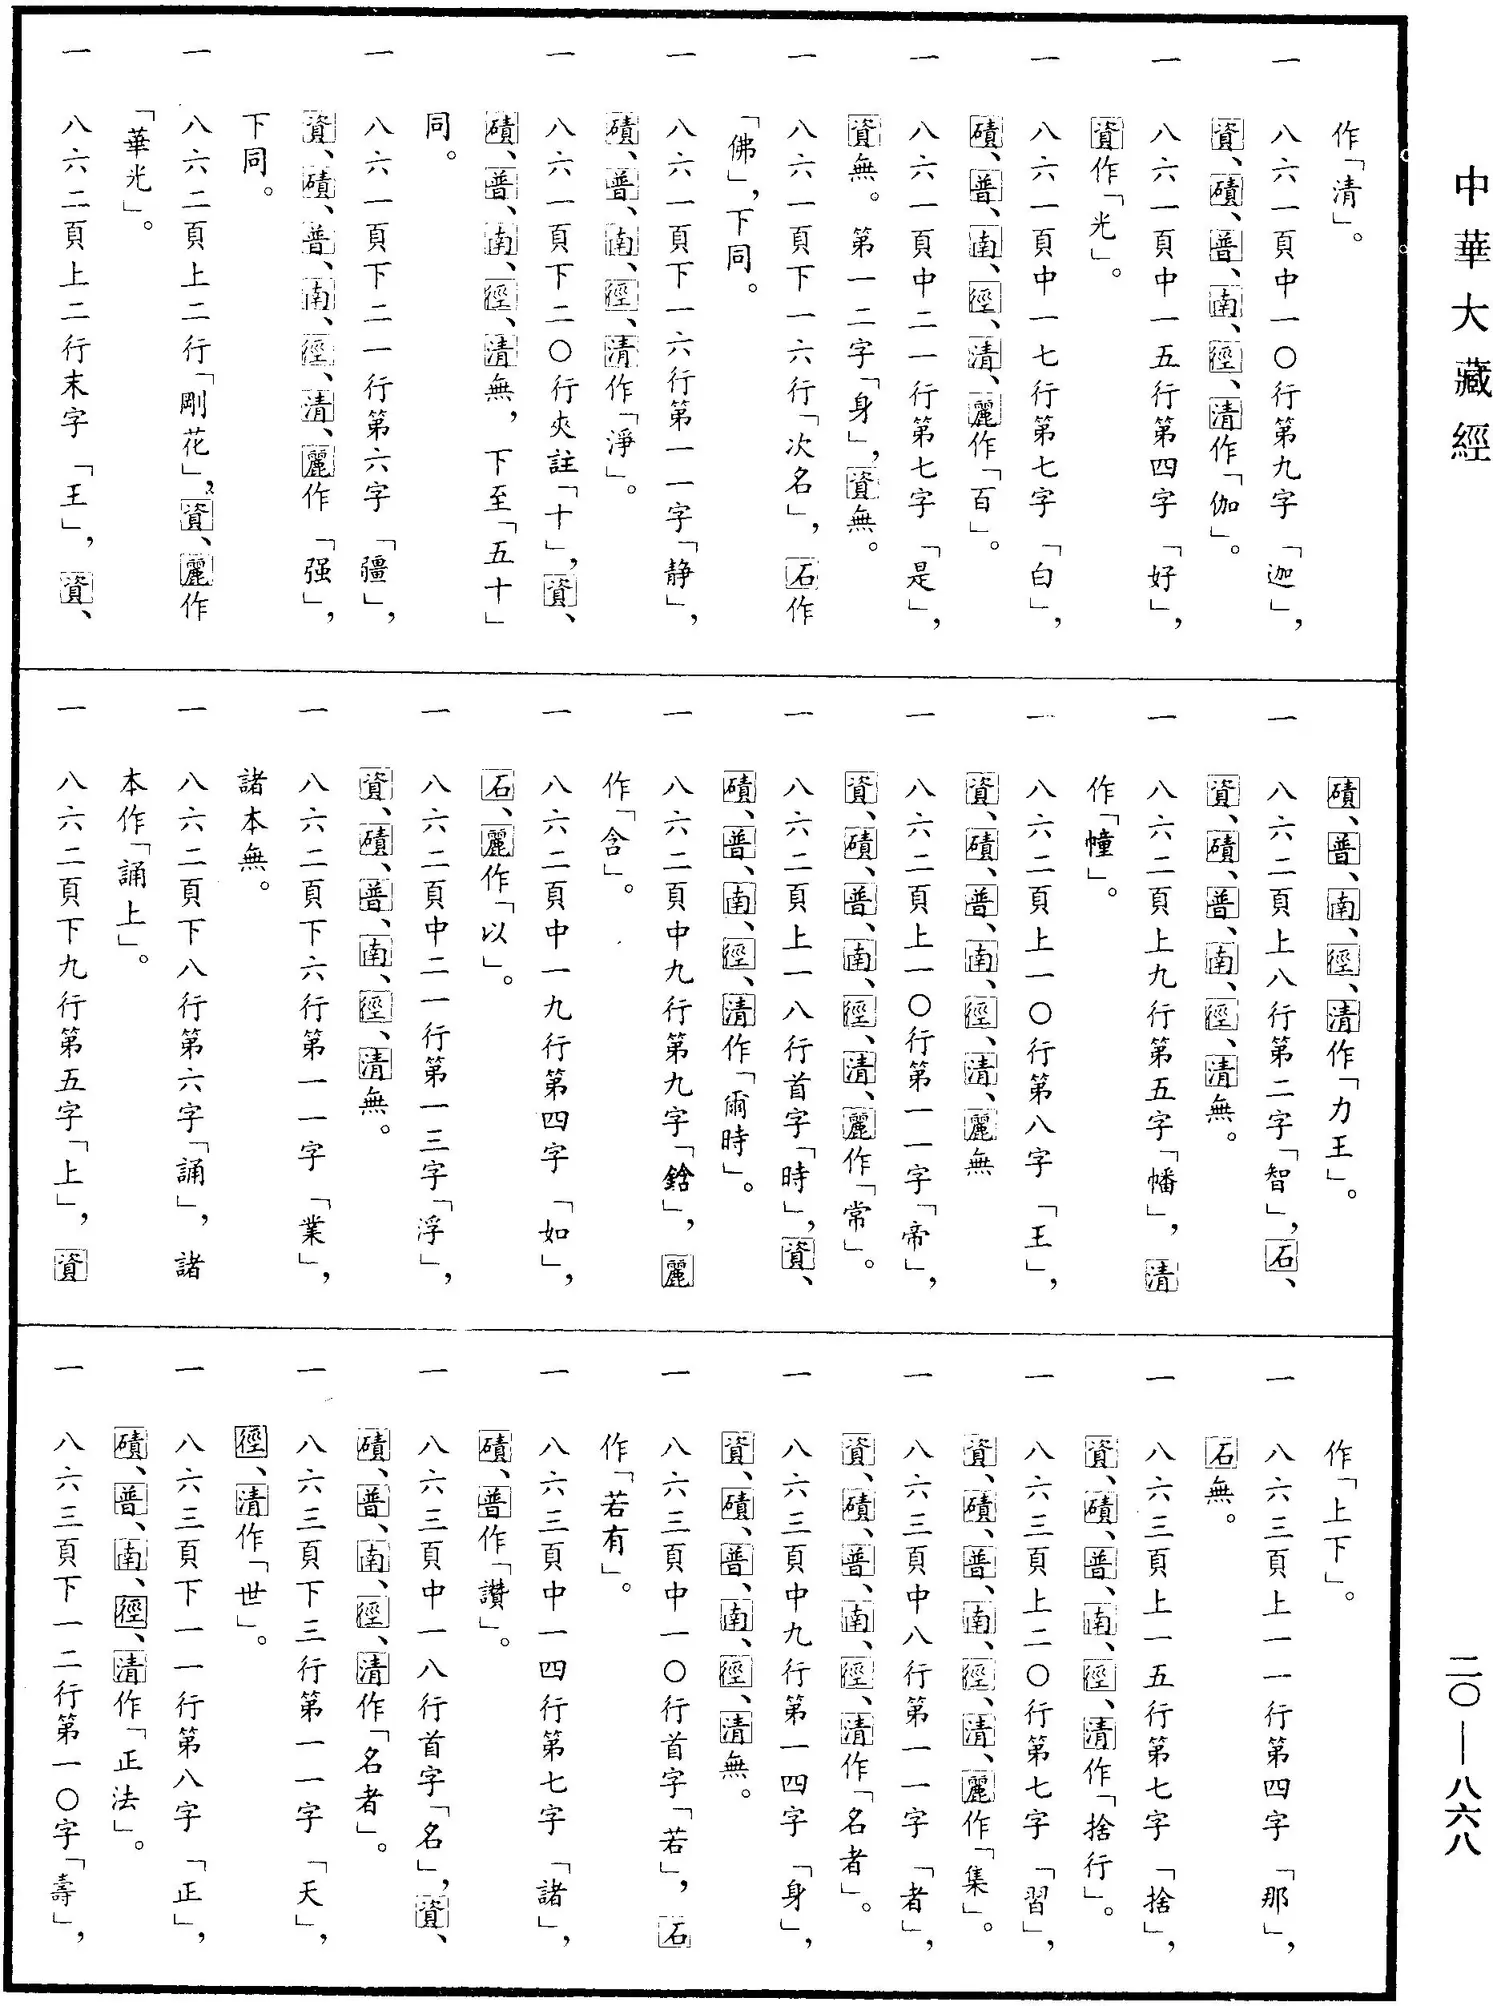 中華大藏經
作「清」。
一 八六一頁中一〇行第九字「迦」，
資、磧、普、南、徑、清作「伽」。
一 八六一頁中一五行第四字「好」，
資作「光」。
一 八六一頁中一七行第七字「白」，
磧、普、南、徑、清、麗作「百」。
一 八六一頁中二一行第七字「是」，
資無。第一二字「身」，資無。
一 八六一頁下一六行「次名」，石作
「佛」，下同。
一 八六一頁下一六行第一一字「静」，
磧、普、南、徑、清作「淨」。
一 八六一頁下二〇行夾註「十」，資、
磧、普、南、徑、清無，下至「五十」
同。
一 八六一頁下二一行第六字「疆」，
資、磧、普、南、徑、清、麗作「强」，
下同。
一 八六二頁上二行「剛花」，資、麗作
「華光」。
一 八六二頁上二行末字「王」，資、
磧、普、南、徑、清作「力王」。
一 八六二頁上八行第二字「智」，石、
資、磧、普、南、徑、清無。
一 八六二頁上九行第五字「幡」，清
作「幢」。
一 八六二頁上一〇行第八字「王」，
資、磧、普、南、徑、清、麗無
一 八六二頁上一〇行第一一字「帝」，
資、磧、普、南、徑、清、麗作「常」。
一 八六二頁上一八行首字「時」，資、
磧、普、南、徑、清作「爾時」。
一 八六二頁中九行第九字「鋡」，麗
作「含」。
一 八六二頁中一九行第四字「如」，
石、麗作「以」。
一 八六二頁中二一行第一三字「浮」，
資、磧、普、南、徑、清無。
一 八六二頁下六行第一一字「業」，
諸本無。
一 八六二頁下八行第六字「誦」，諸
本作「誦上」。
一 八六二頁下九行第五字「上」，資
作「上下」。
一 八六三頁上一一行第四字「那」，
石無。
一 八六三頁上一五行第七字「捨」，
資、磧、普、南、徑、清作「捨行」。
一 八六三頁上二〇行第七字「習」，
資、磧、普、南、徑、清、麗作「集」。
一 八六三頁中八行第一一字「者」，
資、磧、普、南、徑、清作「名者」。
一 八六三頁中九行第一四字「身」，
資、磧、普、南、徑、清無。
一 八六三頁中一〇行首字「若」，石
作「若有」。
一 八六三頁中一四行第七字「諸」，
磧、普作「讚」。
一 八六三頁中一八行首字「名」，資、
磧、普、南、徑、清作「名者」。
一 八六三頁下三行第一一字「天」，
徑、清作「世」。
一 八六三頁下一一行第八字「正」，
磧、普、南、徑、清作「正法」。
一 八六三頁下一二行第一〇字「壽」，
二〇—八六八